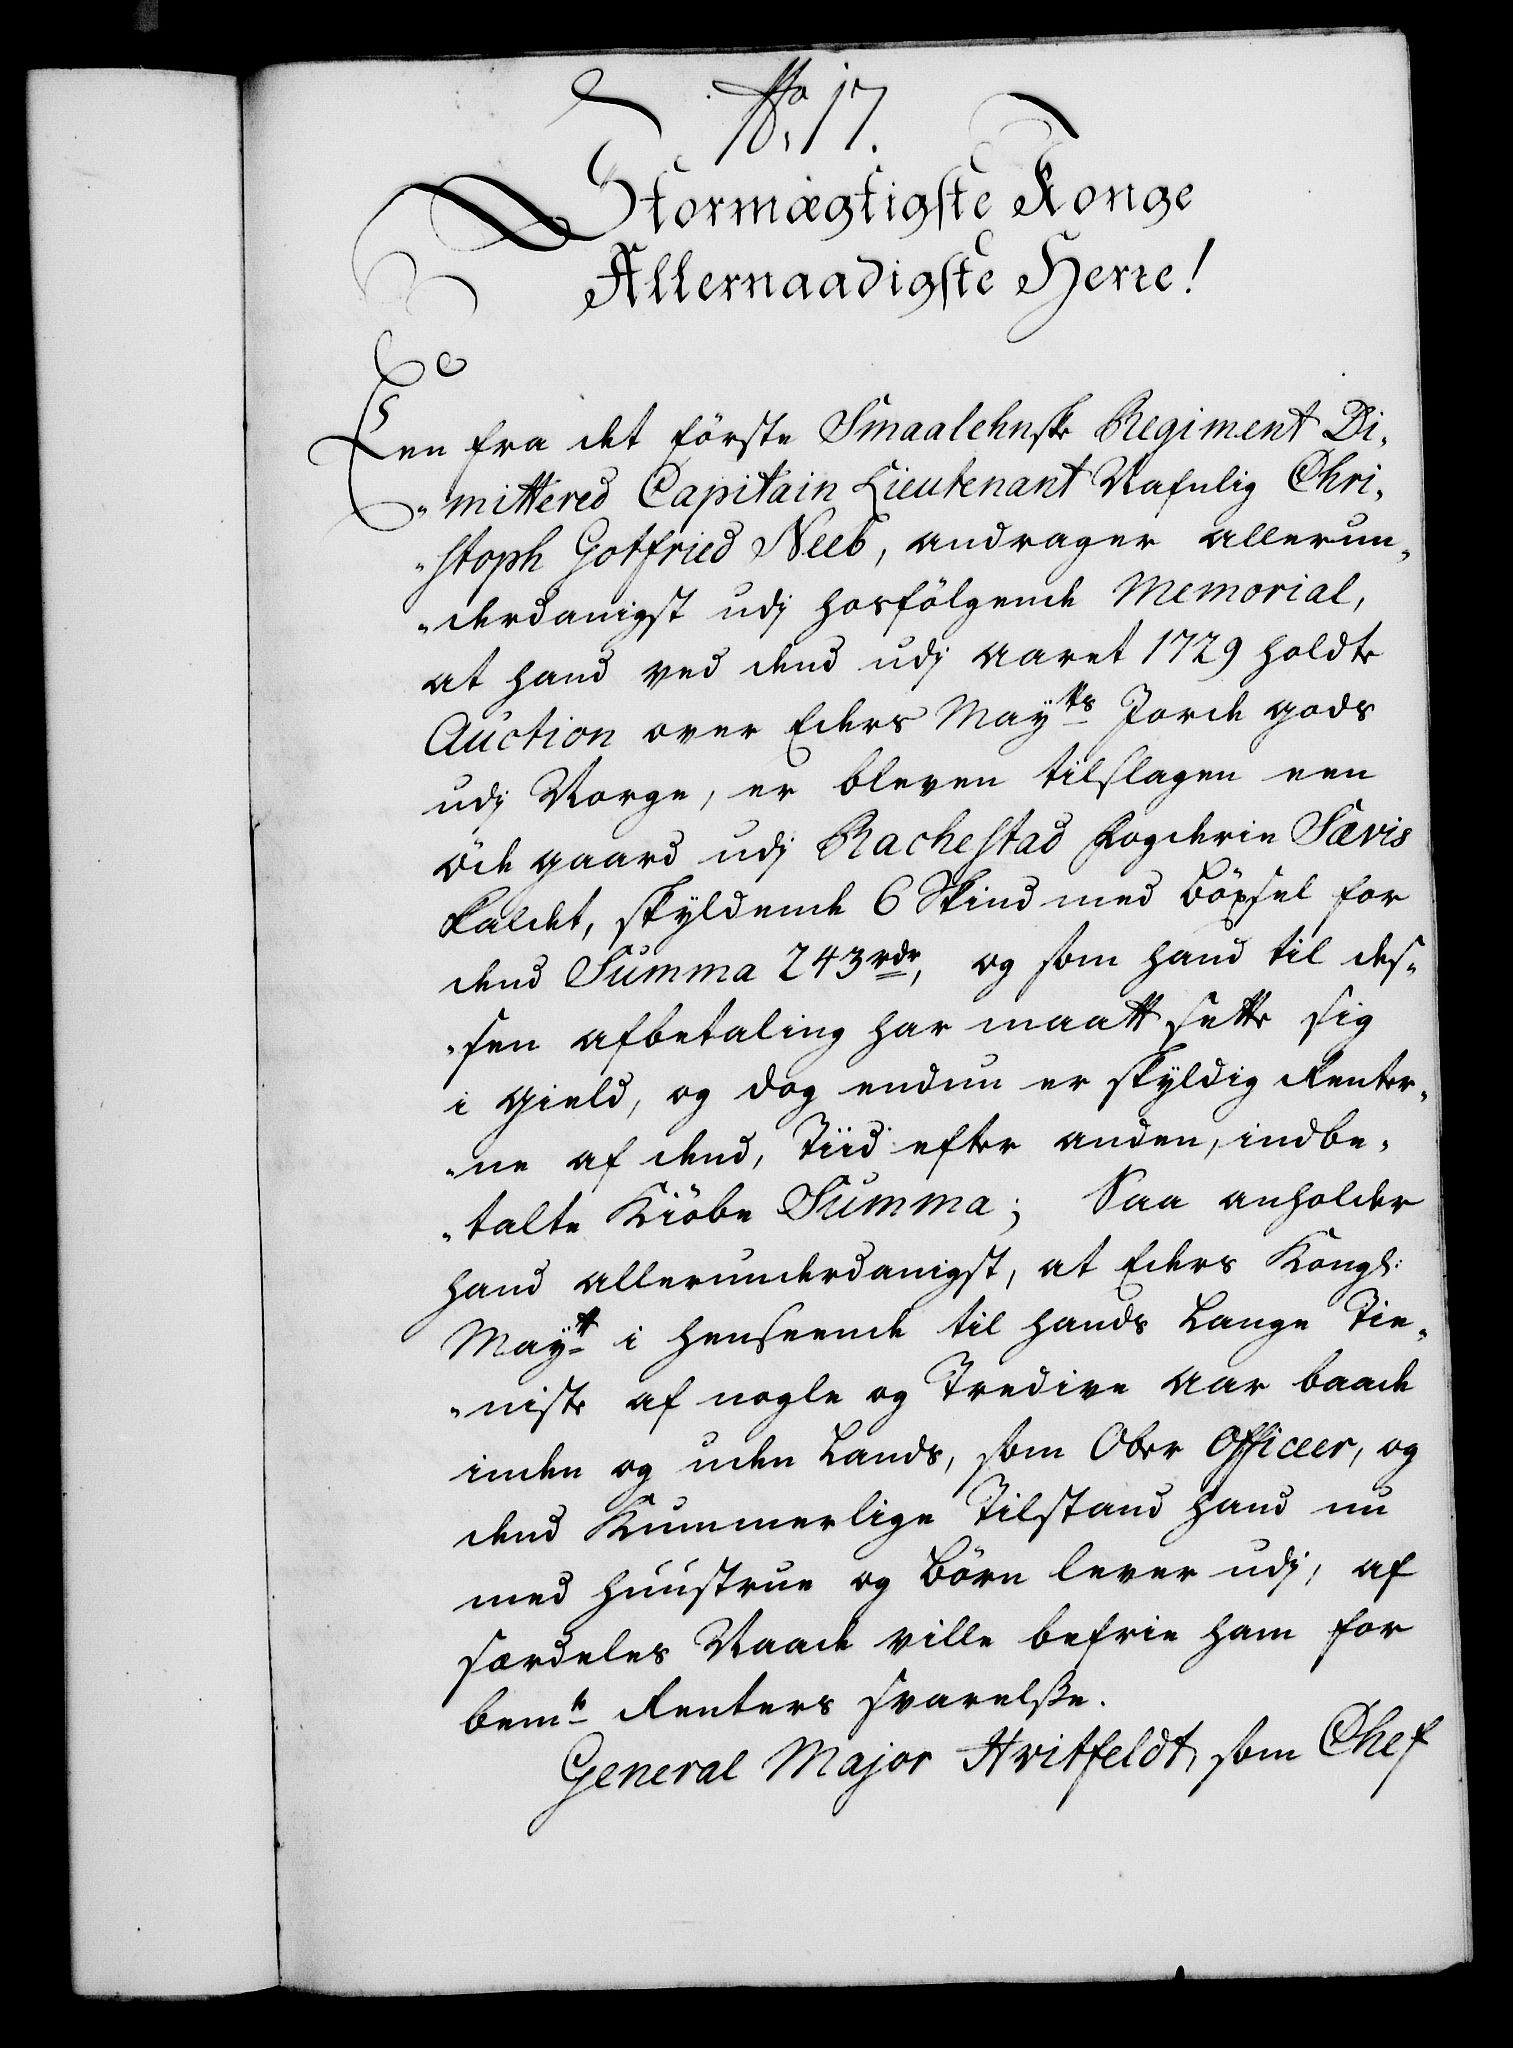 No. 17.
Stormægtigste Konge
Allernaadigste Herre!
Een fra det förste Smaalehnske Regiment Di-
-mittered Capitain Lieutenant Nafnlig Chri-
-stoph Gotfried Neeb, andrager allerun-
-derdanigst udj hosfölgende Memorial,
at hand ved dend udj Aaret 1729 holdte
Auction over Eders Mayts Jorde gods
udj Norge, er bleven tilslagen een
öde gaard udj Rachestad Fogderie Sævis
kaldet, skyldende 6 Skind med Böxsel for
dend Summa 243 rdr, og som hand til des-
-sen afbetaling har maatt sette sig
i gield, og dog endnu er skyldig Renter-
-ne af dend, Tiid efter anden, indbe-
-talte Kiöbe Summa; Saa anholder
hand allerunderdanigst, at Eders Kongl:
Maytt i henseende til hands Lange Tie-
-niste af nogle og Tredive Aar baade
inden og uden Lands, som Ober Officeer, og
dend Kummerlige Tilstand hand nu
med huustrue og Börn lever udj, af
særdeles Naade ville befrie ham for
bemte Renters svarelsse.
General Major Hvitfeldt, som Chef